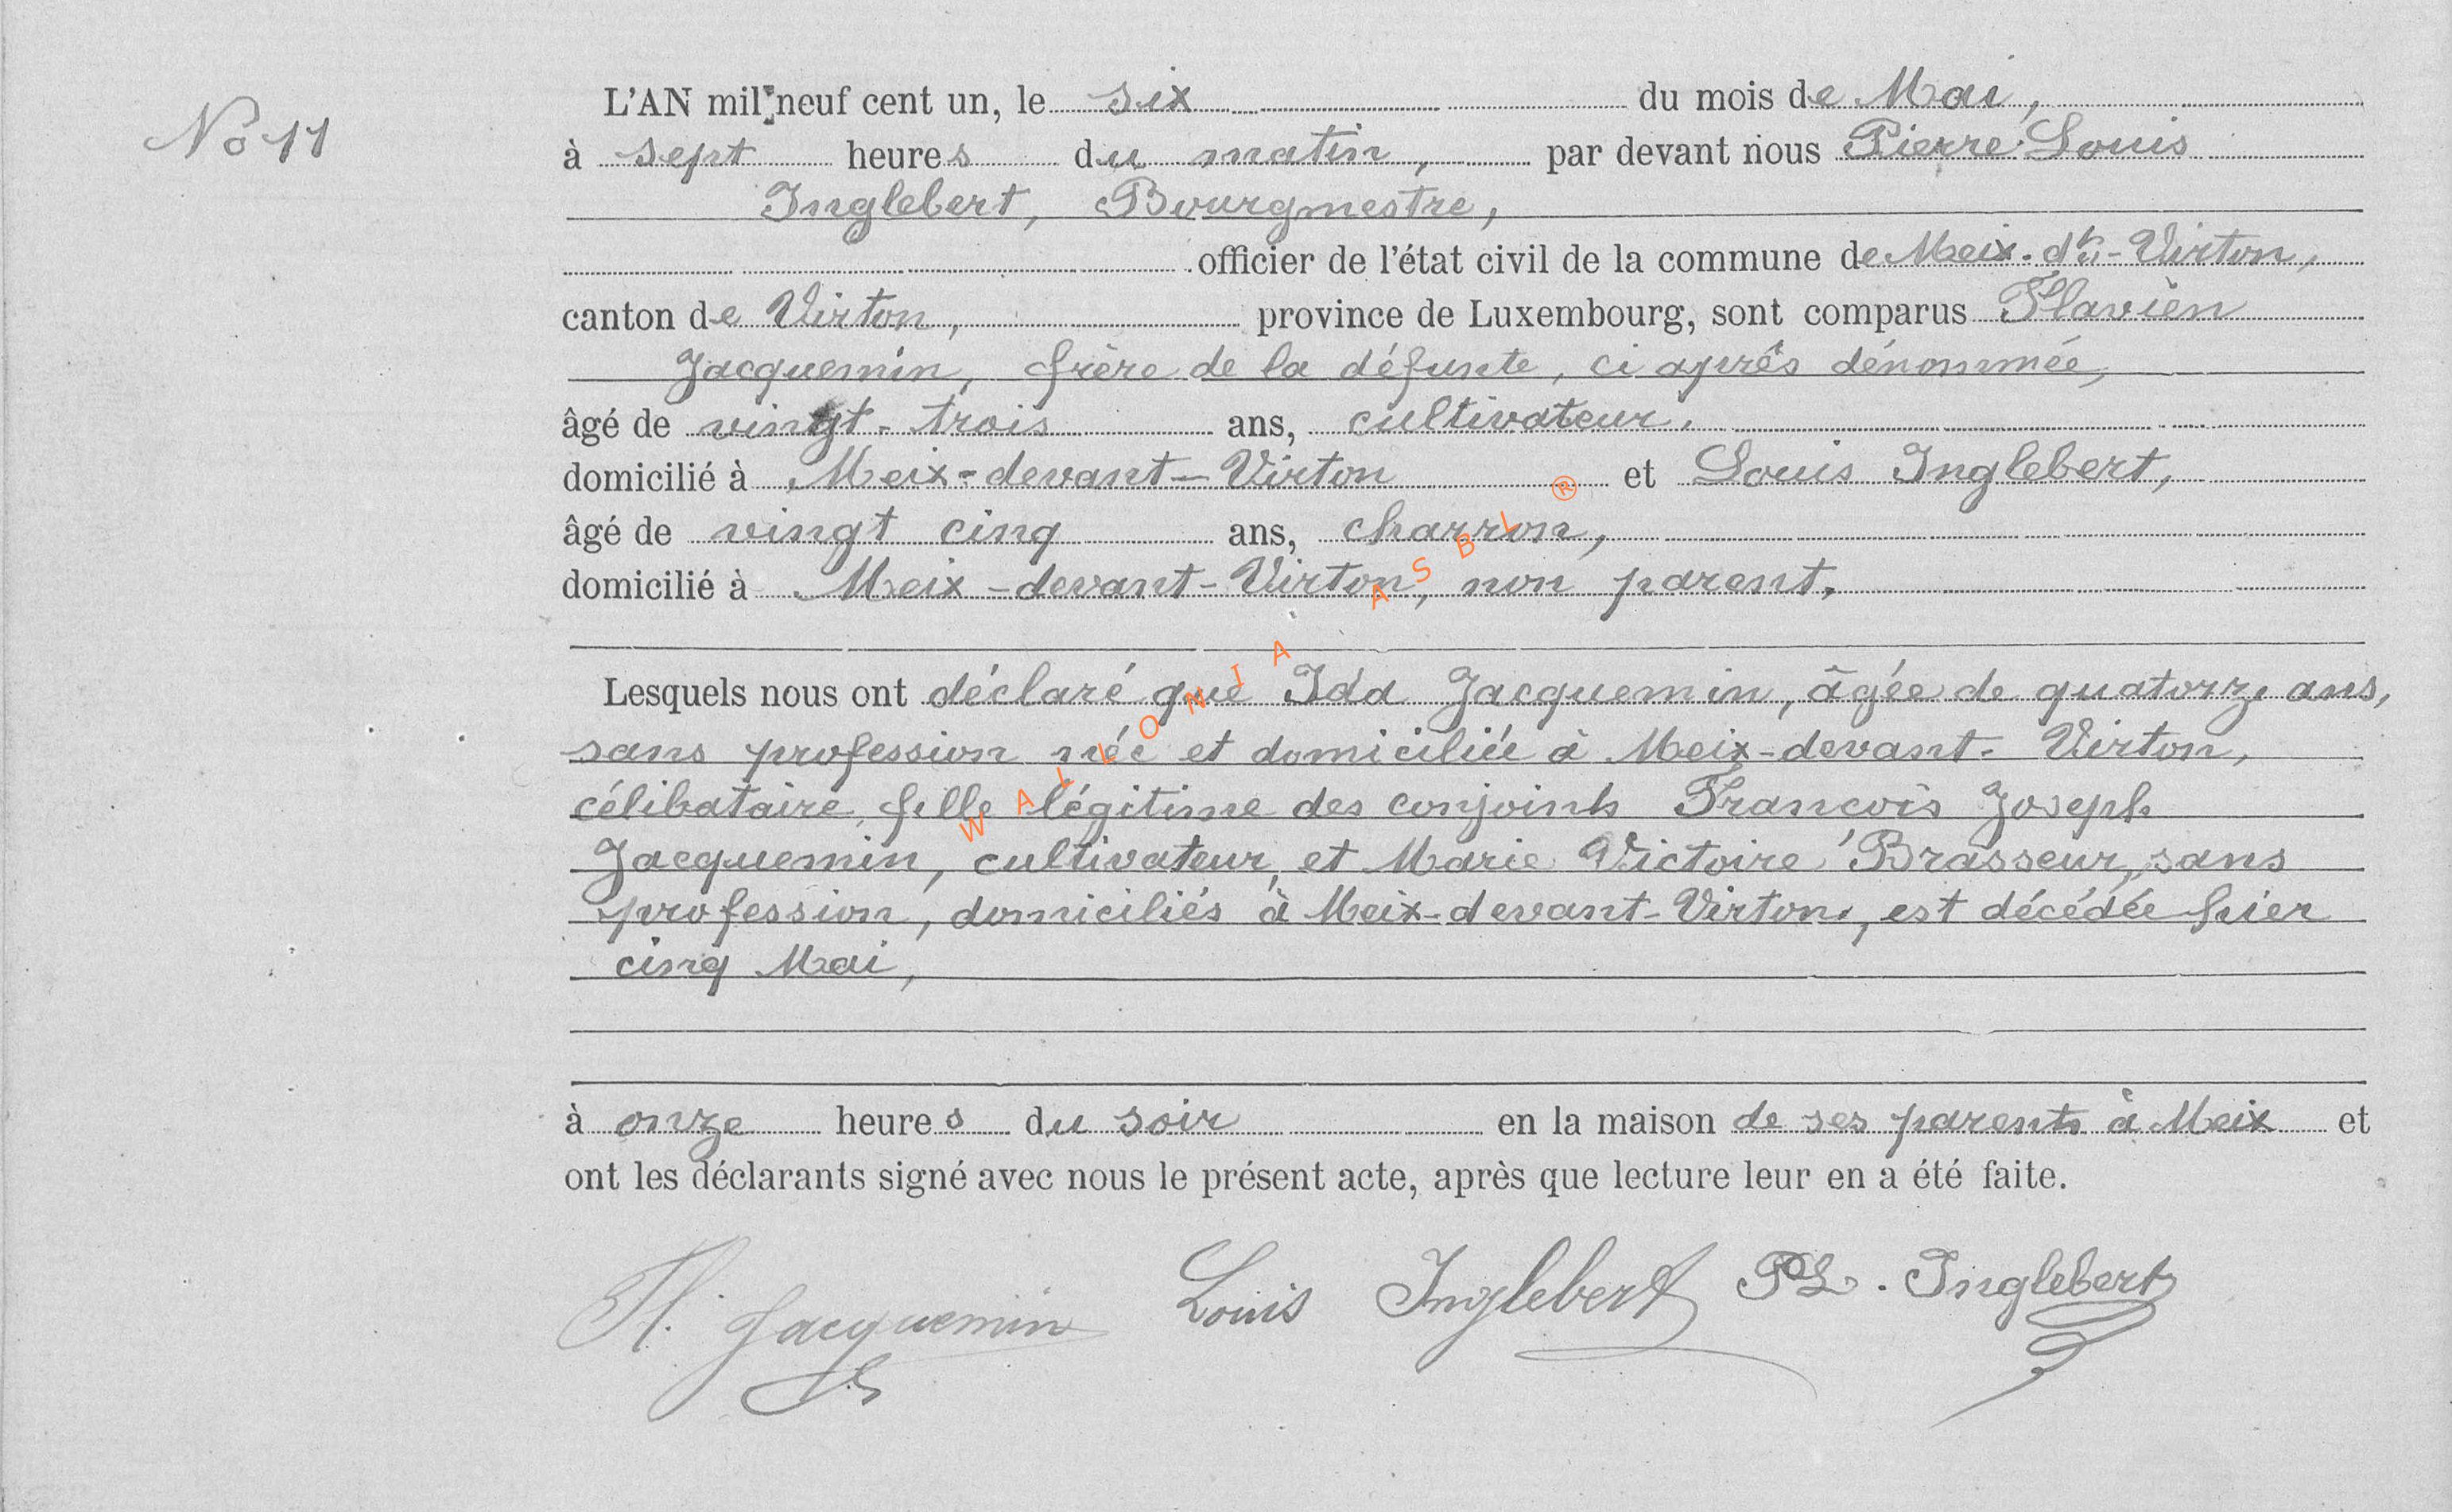 No 11
L'AN mil neuf cent un, le six du mois de Mai,
à sept heures du matin, par devant nous Pierre Louis
Inglebert, Bourgmestre,
officier de l'état civil de la commune de Meix-dt-Virton,
canton de Virton, province de Luxembourg, sont comparus Flavien
Jacquemin, frère de la défunte, ci après dénommée,
âgé de vingt-trois ans, cultivateur,
domicilié à Meix-devant-Virton et Louis Inglebert,
âgé de vingt cinq ans, charron,
domicilié à Meix-devant-Virton, non parent.
Lesquels nous ont déclaré que Ida Jacquemin, âgée de quatorze ans,
sans profession née et domiciliée à Meix-devant-Virton,
célibataire, fille légitime des conjoints François Joseph
Jacquemin, cultivateur, et Marie Victoire Brasseur, sans
profession, domiciliés à Meix-devant-Virton, est décédée hier
cinq Mai,
à onze heures du soir en la maison de ses parents à Meix et
ont les déclarants signé avec nous le présent acte, après que lecture leur en a été faite.
Fl. Jacquemin Louis Inglebert PL. Inglebert
WALLONIA ASBL ®